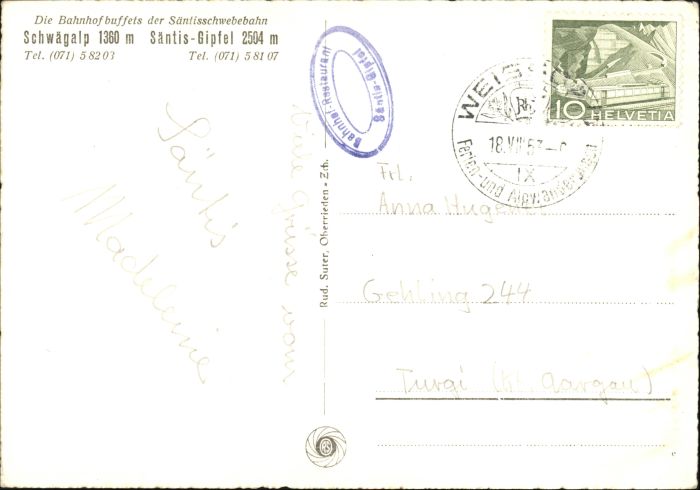 Die Bahnhofbuffets der Säntisschwebebahn
Schwägalp 1360 m Säntis-Gipfel 2504 m
Tel. (071) 5 82 03 Tel. (071) 5 81 07
Bahnhof-Restaurant
Säntis-Gipfel
Viele Grüsse vom
Säntis
Madeleine
Rud. Suter, Oberrieden - Zch.
RS
10 HELVETIA
18. 53
IX
Ferien- und
Frl.
Anna
Gehling 244
Turgi (Kt. Aargau)